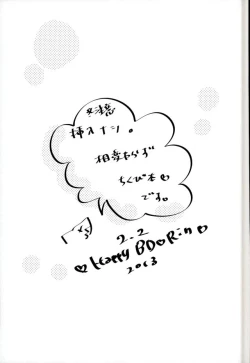 注意
挿入ナシ。
相変わらず
ちくび本♡
です。
2.2
♡Happy BD♡Rin♡
2013